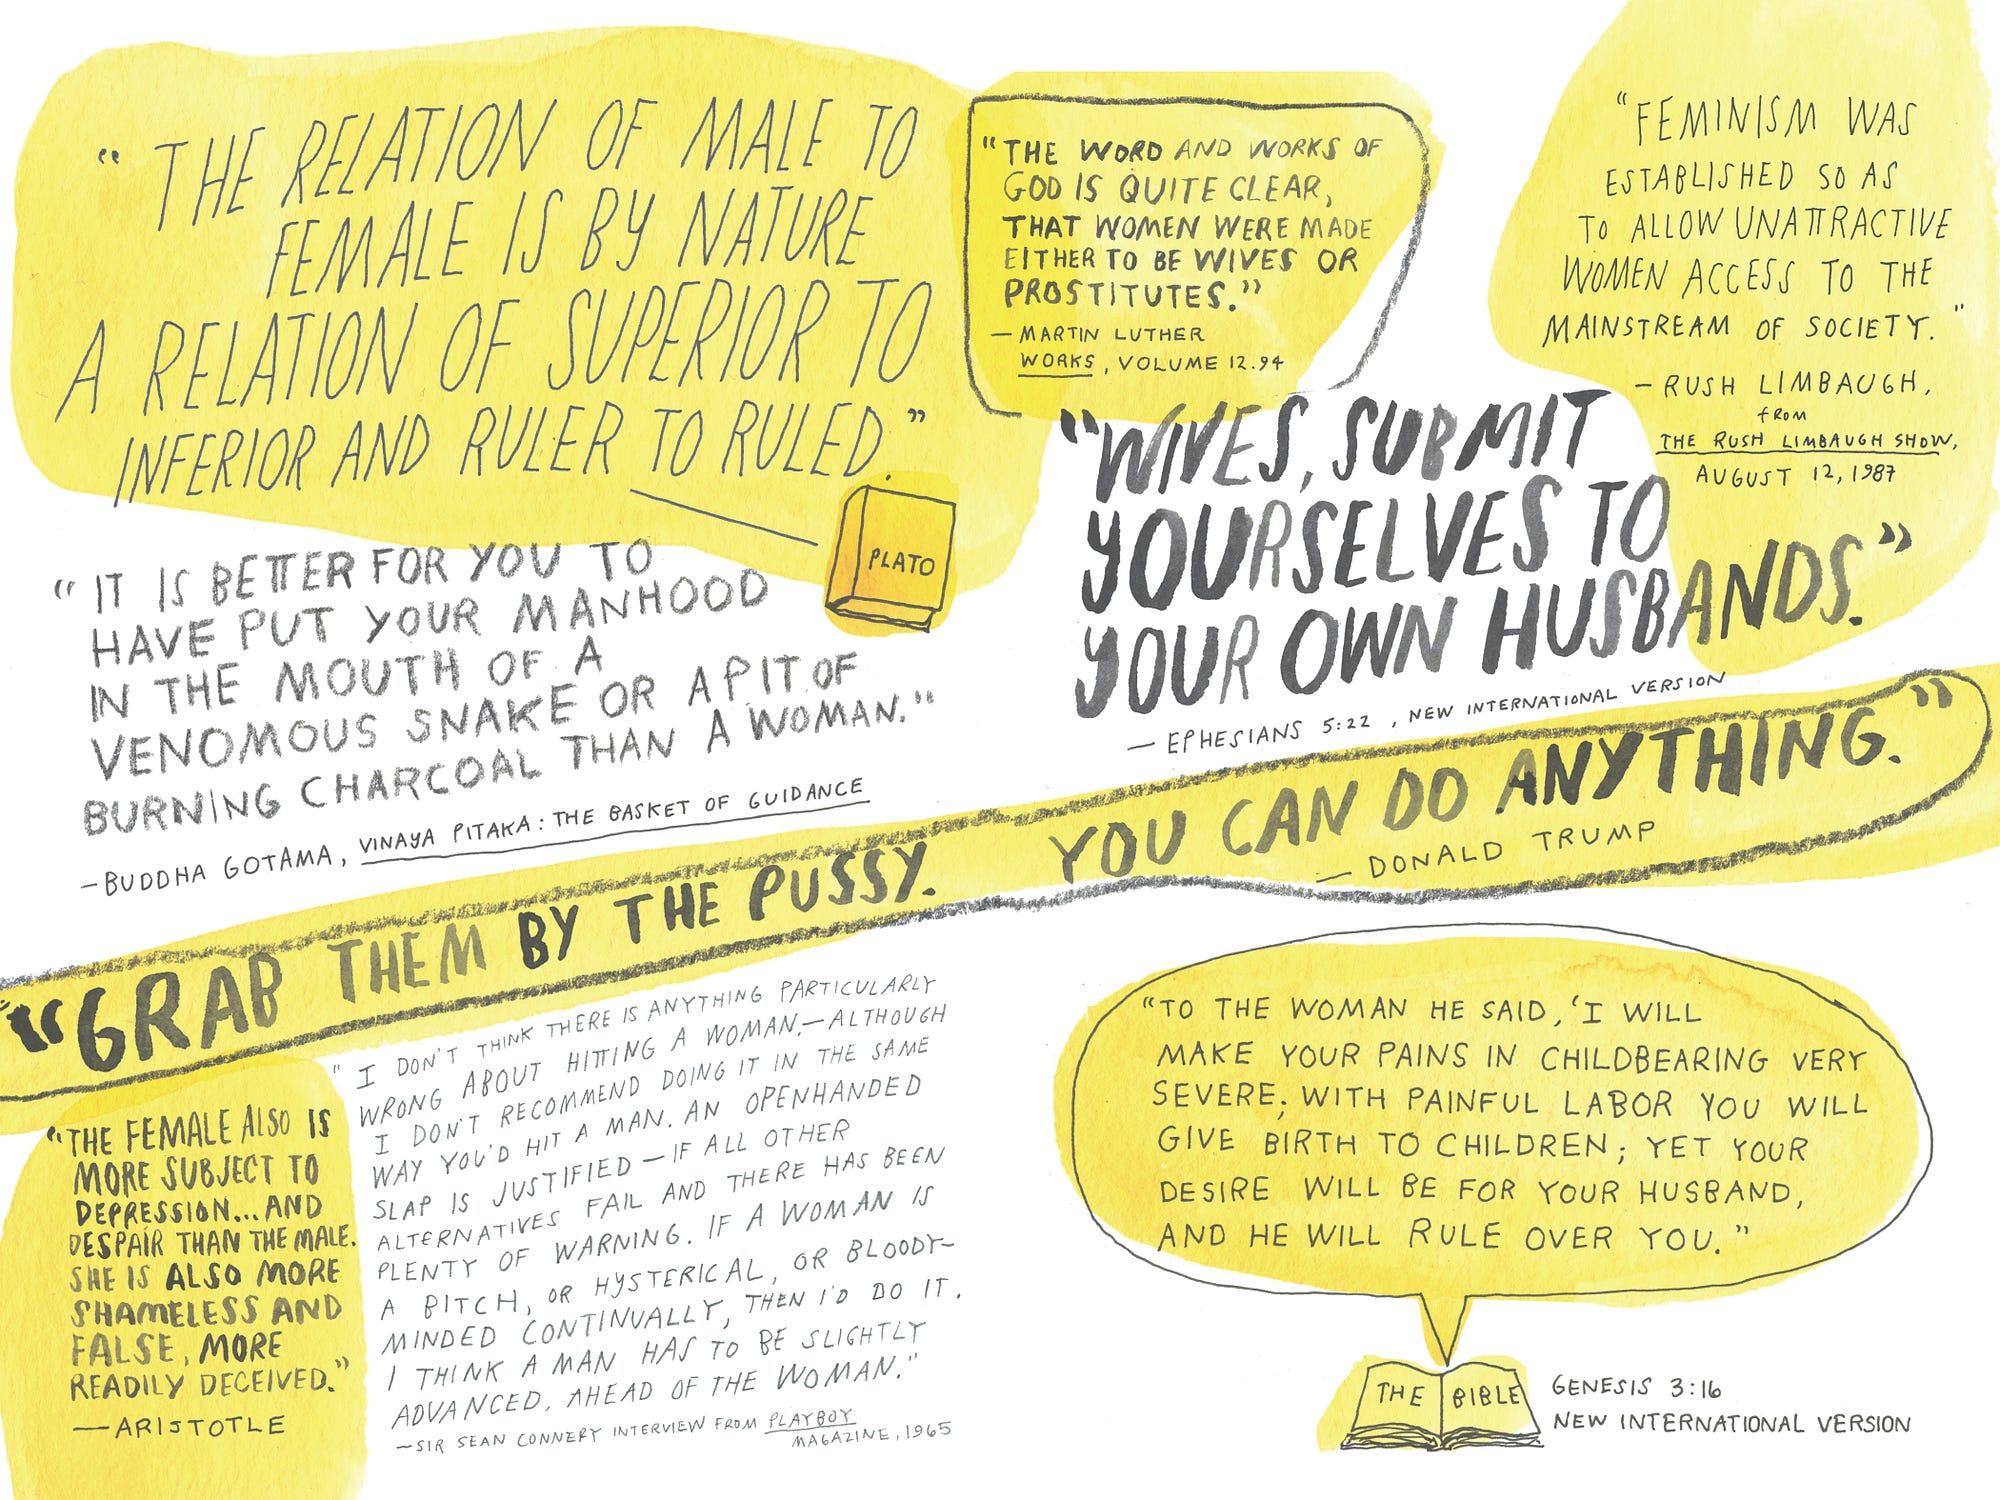 "THE RELATION OF MALE TO
FEMALE IS BY NATURE
A RELATION OF SUPERIOR TO
INFERIOR AND RULER TO RULED."
PLATO
"THE WORD AND WORKS OF
GOD IS QUITE CLEAR,
THAT WOMEN WERE MADE
EITHER TO BE WIVES OR
PROSTITUTES."
— MARTIN LUTHER
WORKS, VOLUME 12.94
"FEMINISM WAS
ESTABLISHED SO AS
TO ALLOW UNATTRACTIVE
WOMEN ACCESS TO THE
MAINSTREAM OF SOCIETY."
— RUSH LIMBAUGH,
FROM
THE RUSH LIMBAUGH SHOW,
AUGUST 12, 1987
"IT IS BETTER FOR YOU TO
HAVE PUT YOUR MANHOOD
IN THE MOUTH OF A
VENOMOUS SNAKE OR A PIT OF
BURNING CHARCOAL THAN A WOMAN."
—BUDDHA GOTAMA, VINAYA PITAKA: THE BASKET OF GUIDANCE
"WIVES, SUBMIT
YOURSELVES TO
YOUR OWN HUSBANDS."
— EPHESIANS 5:22, NEW INTERNATIONAL VERSION
"GRAB THEM BY THE PUSSY. YOU CAN DO ANYTHING."
— DONALD TRUMP
"THE FEMALE ALSO IS
MORE SUBJECT TO
DEPRESSION... AND
DESPAIR THAN THE MALE.
SHE IS ALSO MORE
SHAMELESS AND
FALSE, MORE
READILY DECEIVED."
—ARISTOTLE
"I DON'T THINK THERE IS ANYTHING PARTICULARLY
WRONG ABOUT HITTING A WOMAN.—ALTHOUGH
I DON'T RECOMMEND DOING IT IN THE SAME
WAY YOU'D HIT A MAN. AN OPENHANDED
SLAP IS JUSTIFIED — IF ALL OTHER
ALTERNATIVES FAIL AND THERE HAS BEEN
PLENTY OF WARNING. IF A WOMAN IS
A BITCH, OR HYSTERICAL, OR BLOODY-
MINDED CONTINUALLY, THEN I'D DO IT.
I THINK A MAN HAS TO BE SLIGHTLY
ADVANCED, AHEAD OF THE WOMAN."
—SIR SEAN CONNERY INTERVIEW FROM PLAYBOY
MAGAZINE, 1965
"TO THE WOMAN HE SAID, 'I WILL
MAKE YOUR PAINS IN CHILDBEARING VERY
SEVERE; WITH PAINFUL LABOR YOU WILL
GIVE BIRTH TO CHILDREN; YET YOUR
DESIRE WILL BE FOR YOUR HUSBAND,
AND HE WILL RULE OVER YOU."
THE BIBLE
GENESIS 3:16
NEW INTERNATIONAL VERSION